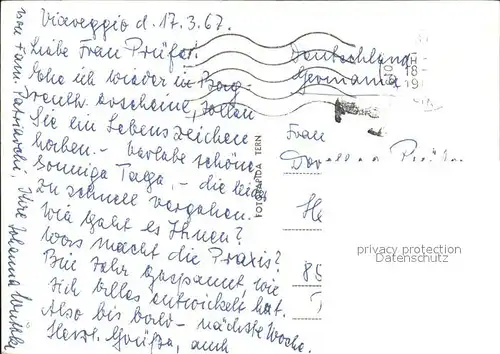 Viareggio d. 17.3.67.
Liebe Frau Prüfer!
Ehe ich wieder in Berg-
Dreuth. erscheine, sollen
Sie ein Lebenszeichen
haben. - verlebe schöne
sonnige Tage, - die leider
zu schnell vergehen.
Wie geht es Ihnen?
Was macht die Praxis?
Bin sehr gespannt, wie
sich alles entwickelt hat.
Also bis bald - nächste Woche.
Herzl. Grüße, auch
von Fam. Patriarchi, Ihre Johanna
Deutschland
Germania
18-
19
Frau
FOTORAPIDA TERNI
privacy protection
DATENSCHUTZ